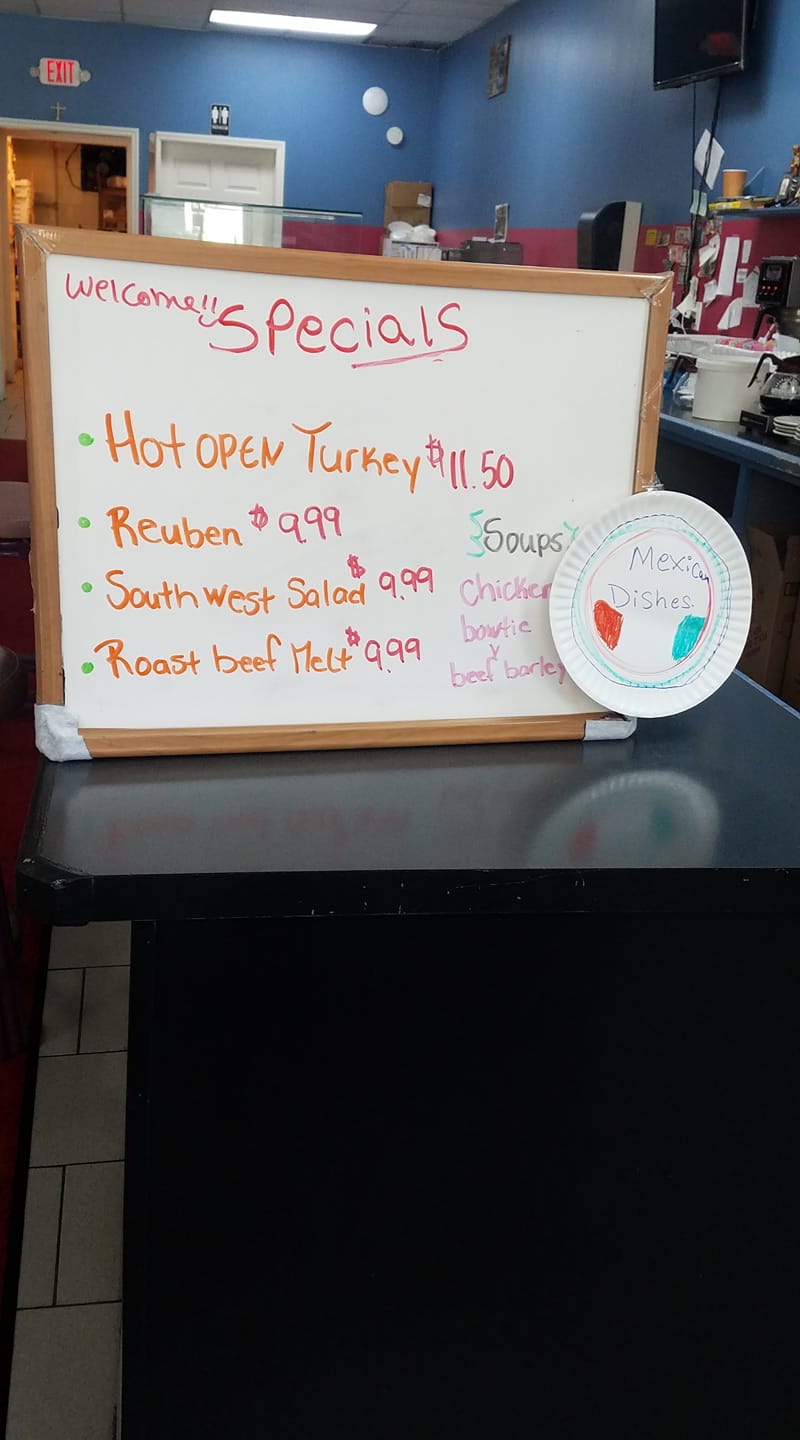 EXIT
Welcome!!
Specials
Hot OPEN Turkey $11.50
Reuben $9.99
South west Salad $9.99
Roast beef Melt $9.99
Soups
Chicken
bowtie
beef barley
Mexican
Dishes.